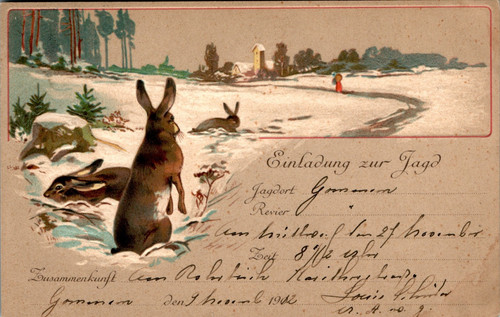 Einladung zur Jagd
Jagdort Gommern
Revier "
am Mittwoch den 27 November
Zeit 8 1/2 Uhr
Zusammenkunft Am
Gommern den 9 Novemb 1902 Louis
u. A. w. g.